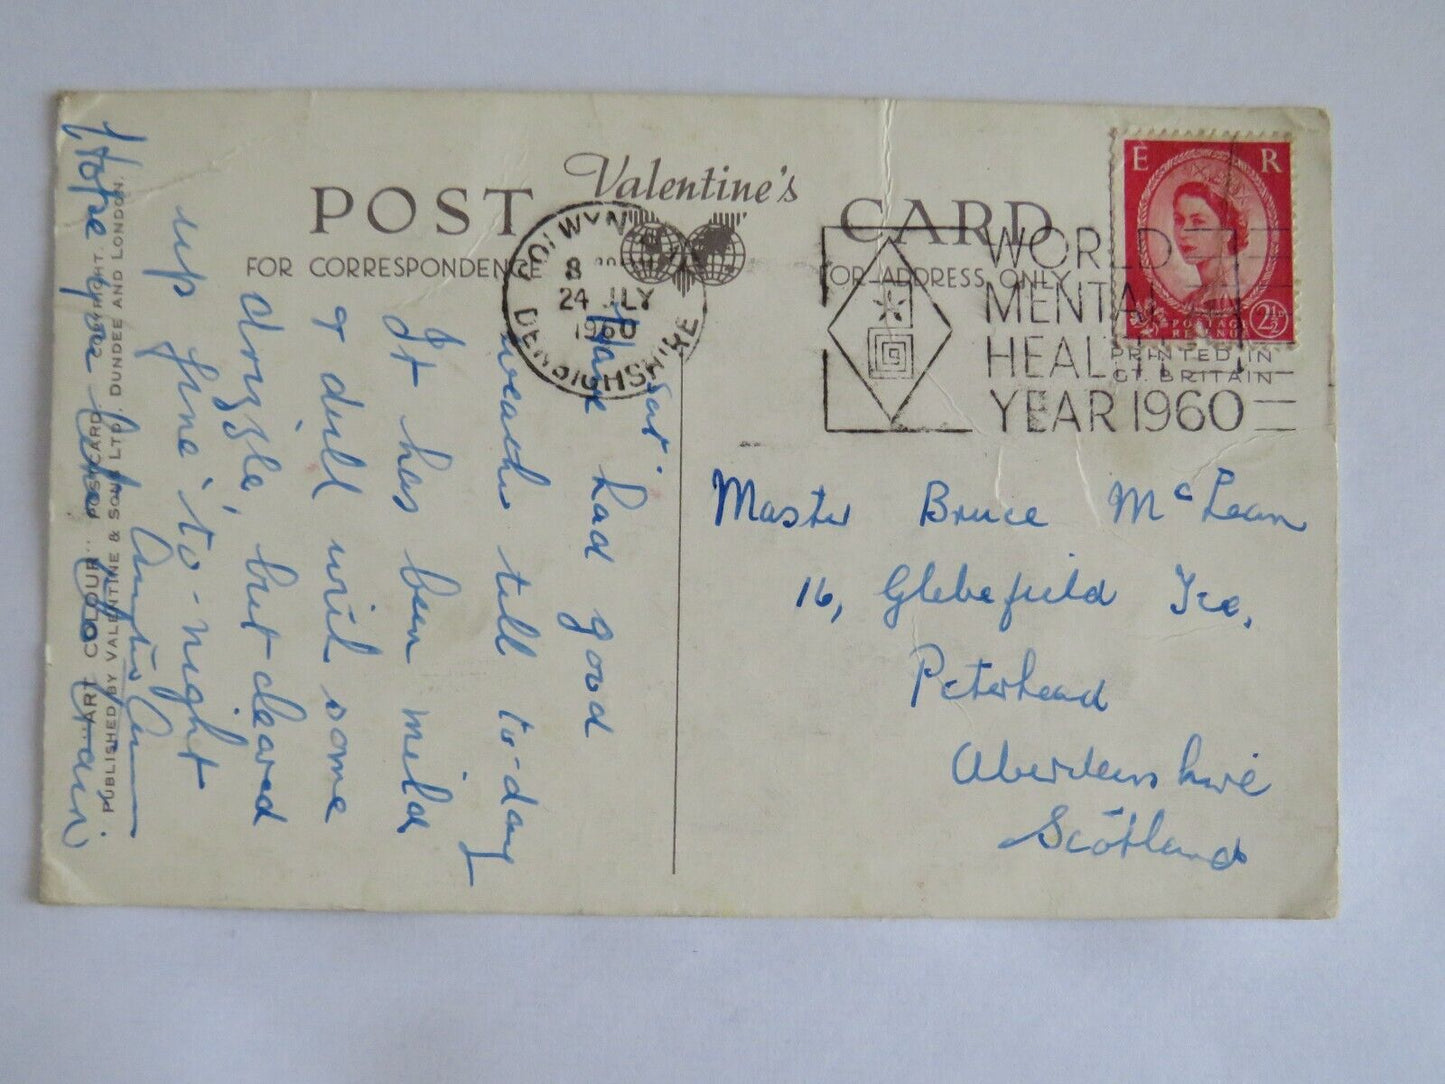 Valentine's
POST CARD
FOR CORRESPONDENCE
FOR ADDRESS ONLY
COLWYN BAY
8
24 JLY
1960
DENBIGHSHIRE
WORLD
MENTAL
HEALTH
YEAR 1960
E R
POSTAGE
REVENUE
2½
PRINTED IN
GT. BRITAIN
Master Bruce McLean
16, Glebefield Tce,
Peterhead
Aberdeenshire
Scotland
Sat.
Have had good
weather till to-day
It has been mild
& dull with some
drizzle, but cleared
up fine to-night
Hope you
"ART COLOUR" POSTCARD. COPYRIGHT.
PUBLISHED BY VALENTINE & SONS LTD, DUNDEE AND LONDON.